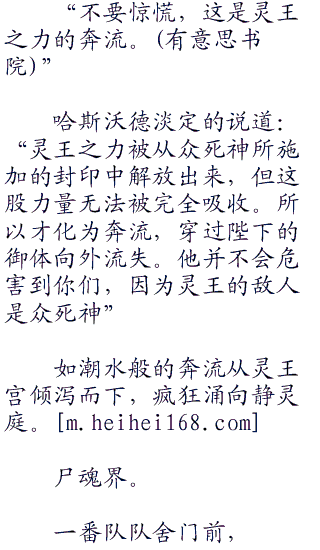 “不要惊慌，这是灵王
之力的奔流。(有意思书
院)”
哈斯沃德淡定的说道：
“灵王之力被从众死神所施
加的封印中解放出来，但这
股力量无法被完全吸收。所
以才化为奔流，穿过陛下的
御体向外流失。他并不会危
害到你们，因为灵王的敌人
是众死神”
如潮水般的奔流从灵王
宫倾泻而下，疯狂涌向静灵
庭。[m.heihei168.com]
尸魂界。
一番队队舍门前，